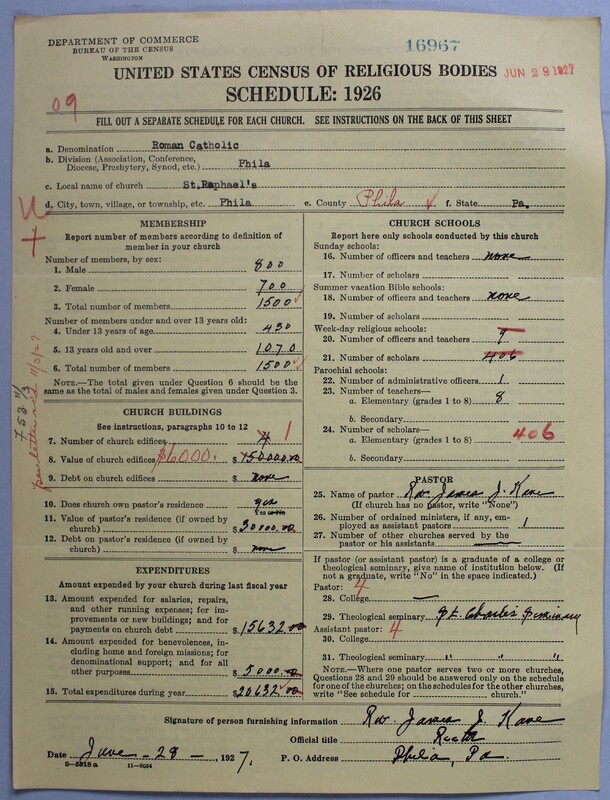 DEPARTMENT OF COMMERCE
BUREAU OF THE CENSUS
WASHINGTON
16967
UNITED STATES CENSUS OF RELIGIOUS BODIES
JUN 29 1927
SCHEDULE: 1926
09
FILL OUT A SEPARATE SCHEDULE FOR EACH CHURCH. SEE INSTRUCTIONS ON THE BACK OF THIS SHEET
a. Denomination Roman Catholic
b. Division (Association, Conference,
Diocese, Presbytery, Synod, etc.) Phila
c. Local name of church St.Raphael's
d. City, town, village, or township, etc. Phila e. County Phila f. State Pa.
MEMBERSHIP
Report number of members according to definition of
member in your church
Number of members, by sex:
1. Male 800
2. Female 700
3. Total number of members 1500
Number of members under and over 13 years old:
4. Under 13 years of age 430
5. 13 years old and over 1070
6. Total number of members 1500
NOTE.—The total given under Question 6 should be
the same as the total of males and females given under Question 3.
CHURCH BUILDINGS
See instructions, paragraphs 10 to 12
7. Number of church edifices 4 1
8. Value of church edifices $6000. $ 150000.00
9. Debt on church edifices $ none
10. Does church own pastor's residence yes
Yes or No
11. Value of pastor's residence (if owned by
church) $ 30000.00
12. Debt on pastor's residence (if owned by
church) $ none
EXPENDITURES
Amount expended by your church during last fiscal year
13. Amount expended for salaries, repairs,
and other running expenses; for im-
provements or new buildings; and for
payments on church debt $ 15632.00
14. Amount expended for benevolences, in-
cluding home and foreign missions; for
denominational support; and for all
other purposes $ 5000.00
15. Total expenditures during year $ 20632.00
CHURCH SCHOOLS
Report here only schools conducted by this church
Sunday schools:
16. Number of officers and teachers none
17. Number of scholars
Summer vacation Bible schools:
18. Number of officers and teachers none
19. Number of scholars
Week-day religious schools:
20. Number of officers and teachers 9
21. Number of scholars 406
Parochial schools:
22. Number of administrative officers 1
23. Number of teachers—
a. Elementary (grades 1 to 8) 8
b. Secondary
24. Number of scholars—
a. Elementary (grades 1 to 8) 406
b. Secondary
PASTOR
25. Name of pastor Rev James J. Kane
(If church has no pastor, write "None")
26. Number of ordained ministers, if any, em-
ployed as assistant pastors 1
27. Number of other churches served by the
pastor or his assistants —
If pastor (or assistant pastor) is a graduate of a college or
theological seminary, give name of institution below. (If
not a graduate, write "No" in the space indicated.)
Pastor: 4
28. College —
29. Theological seminary St Charles Seminary
Assistant pastor: 4
30. College
31. Theological seminary " " "
NOTE.—Where one pastor serves two or more churches,
Questions 28 and 29 should be answered only on the schedule
for one of the churches; on the schedules for the other churches,
write "See schedule for church."
Signature of person furnishing information Rev. James J. Kane
Official title Rector
Date June - 28 - 1927. P. O. Address Phila, Pa.
8-5318a 11-9054